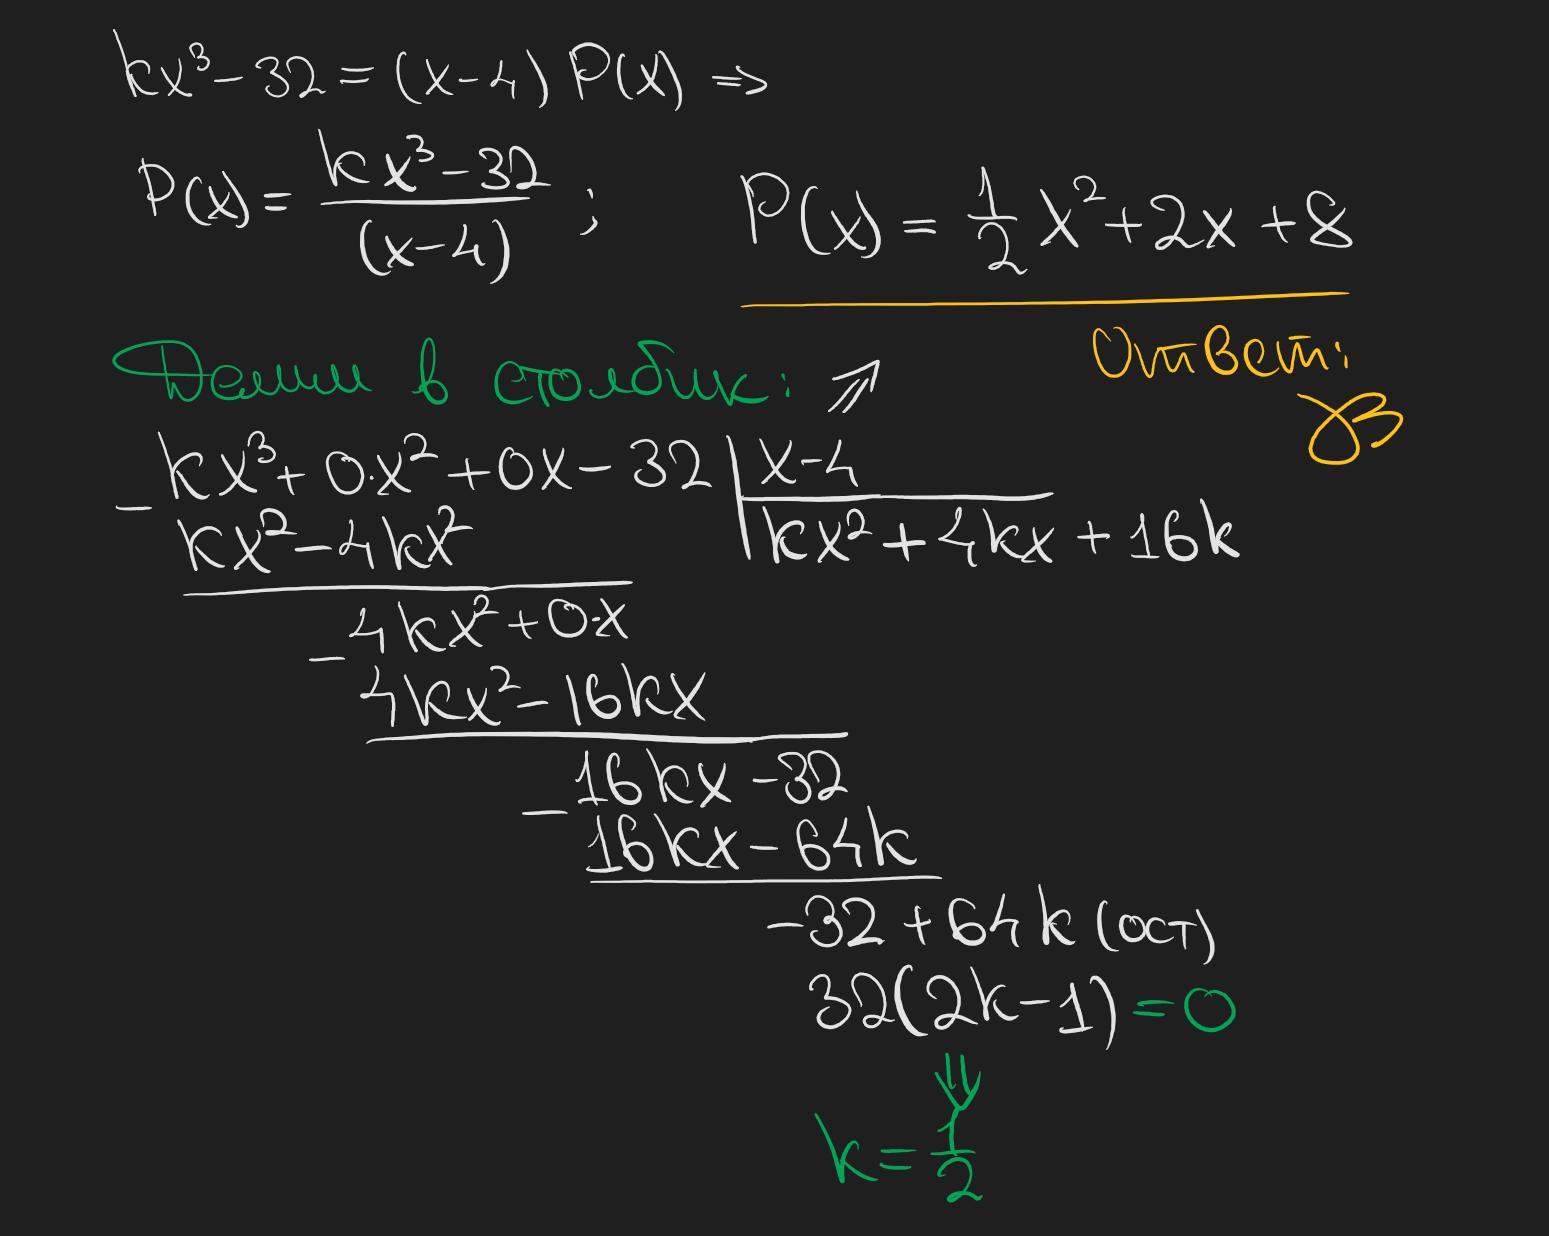 kx³-32=(x-4)P(x) ⇒
P(x)= kx³-32 / (x-4) ;
P(x) = 1/2 x²+2x+8
Ответ:
Делим в столбик: ⇗
- kx³+0·x²+0x-32 | x-4
kx²-4kx² | kx²+4kx+16k
- 4kx²+0·x
4kx²-16kx
- 16kx-32
16kx-64k
-32+64k (ост)
32(2k-1)=0
⇓
k=1/2